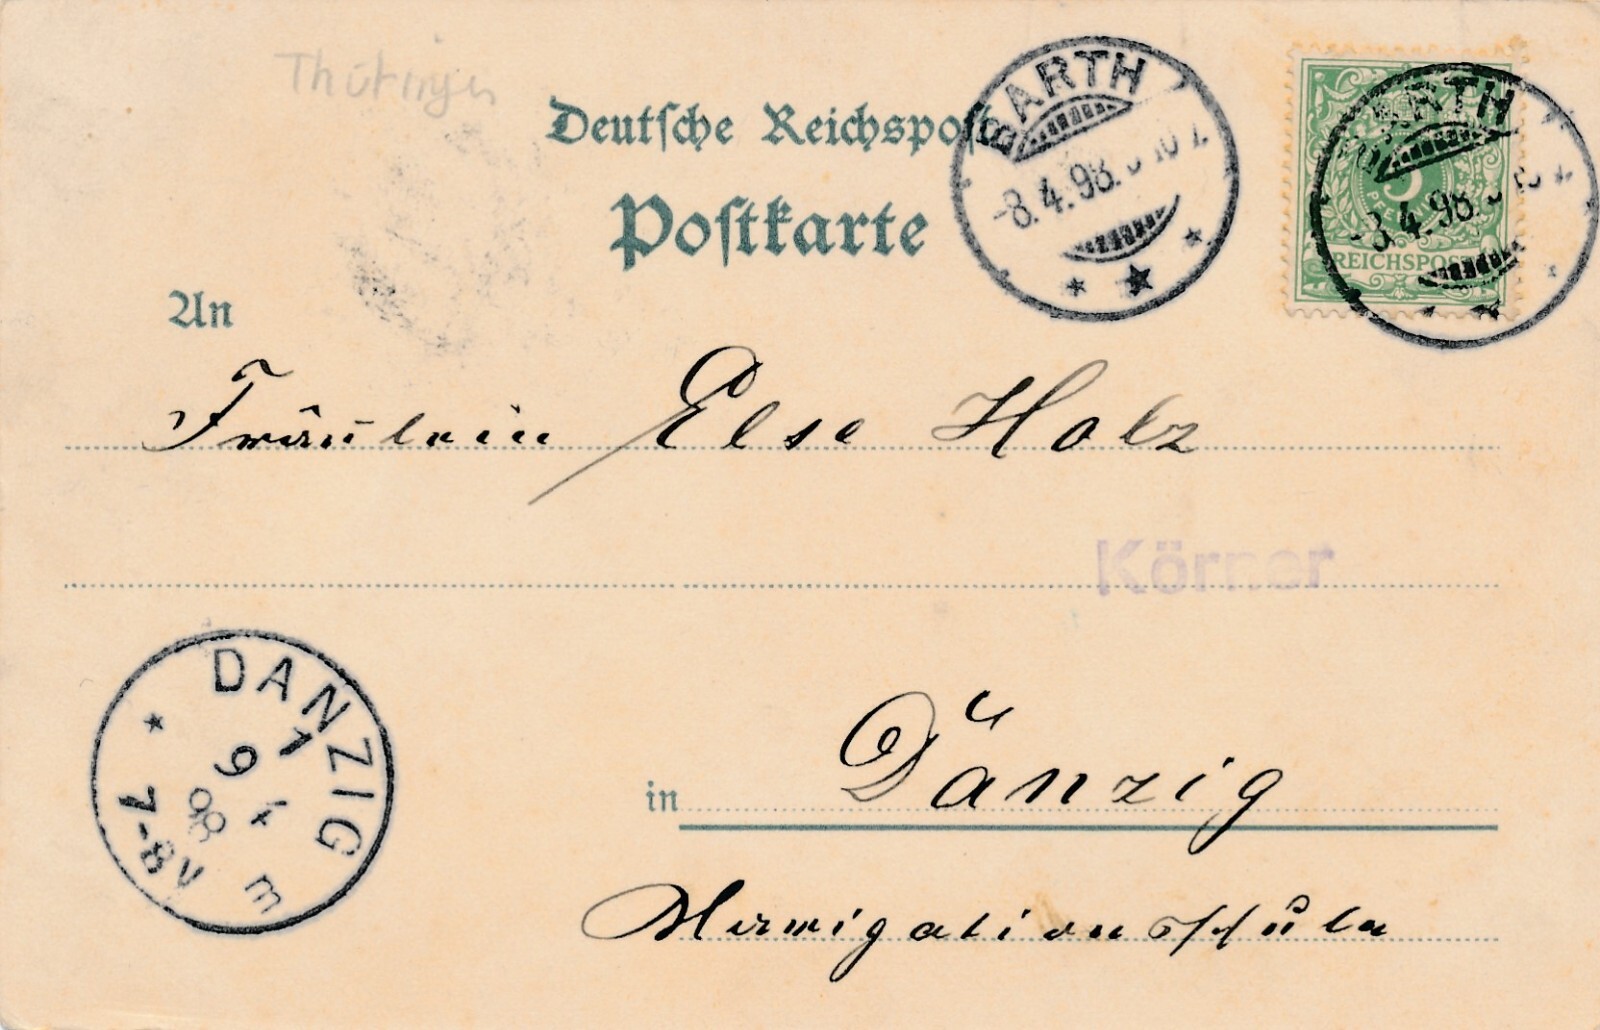 Thüringen
Deutsche Reichspost
Postkarte
BARTH
-8.4.98.
BARTH
-8.4.98.
5
PFENNIG
REICHSPOST
An
Fräulein Else Holz
Körner
DANZIG
1
9 4
98
7-8V
m
in Danzig